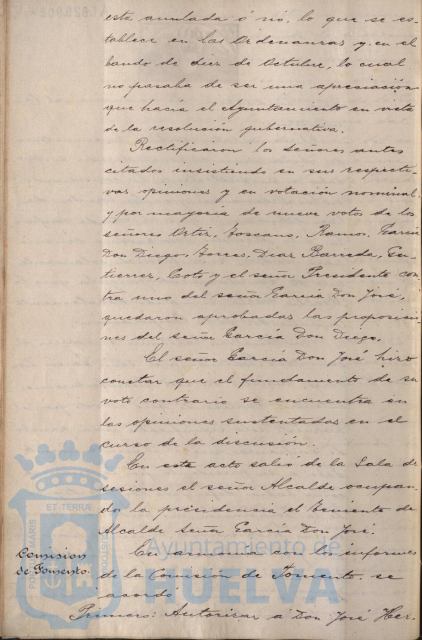 está anulada ó nó, lo que se es-
tablece en las Ordenanzas y en el
bando de diez de Octubre, lo cual
no pasaba de ser una apreciación
que hacía el Ayuntamiento en vista
de la resolución gubernativa.
Rectificaron los señores antes
citados insistiendo en sus respecti-
vas opiniones y en votación nominal
y por mayoría de nueve votos de los
señores Ortiz, Toscano, Ramos, García
Don Diego, Torres, Diaz Barreda, Gu-
tierrez, Coto y el señor Presidente con-
tra uno del señor García Don José,
quedaron aprobadas las proposicio-
nes del señor García Don Diego.
El señor García Don José hizo
constar que el fundamento de su
voto contrario se encuentra en
las opiniones sustentadas en el
curso de la discusión.
En este acto salió de la Sala de
sesiones el señor Alcalde ocupan-
do la presidencia el Teniente de
Alcalde señor García Don José.
Comision
de Fomento.
De acuerdo con lo informe
de la Comisión de Fomento, se
acordó:
Primero: Autorizar á Don José Her-
Ayuntamiento de
HUELVA
ET TERRA